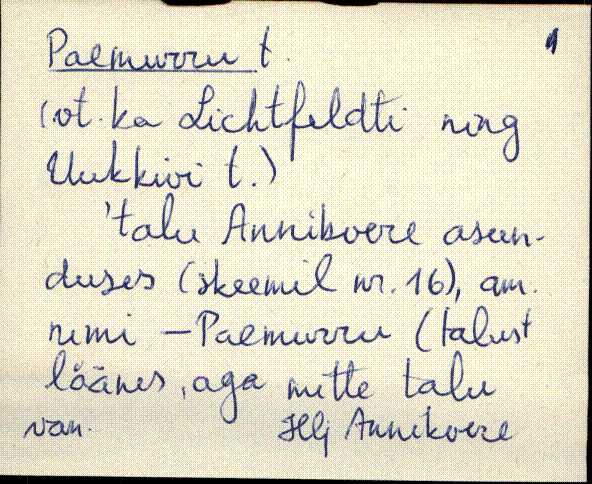 Paemurru t. 1
(vt. ka Lichtfeldti ning
Uukkivi t.)
'talu Annikvere asun-
duses (skeemil nr. 16), am.
nimi - Paemurru (talust
läänes, aga mitte talu
van. Hlj Annikvere